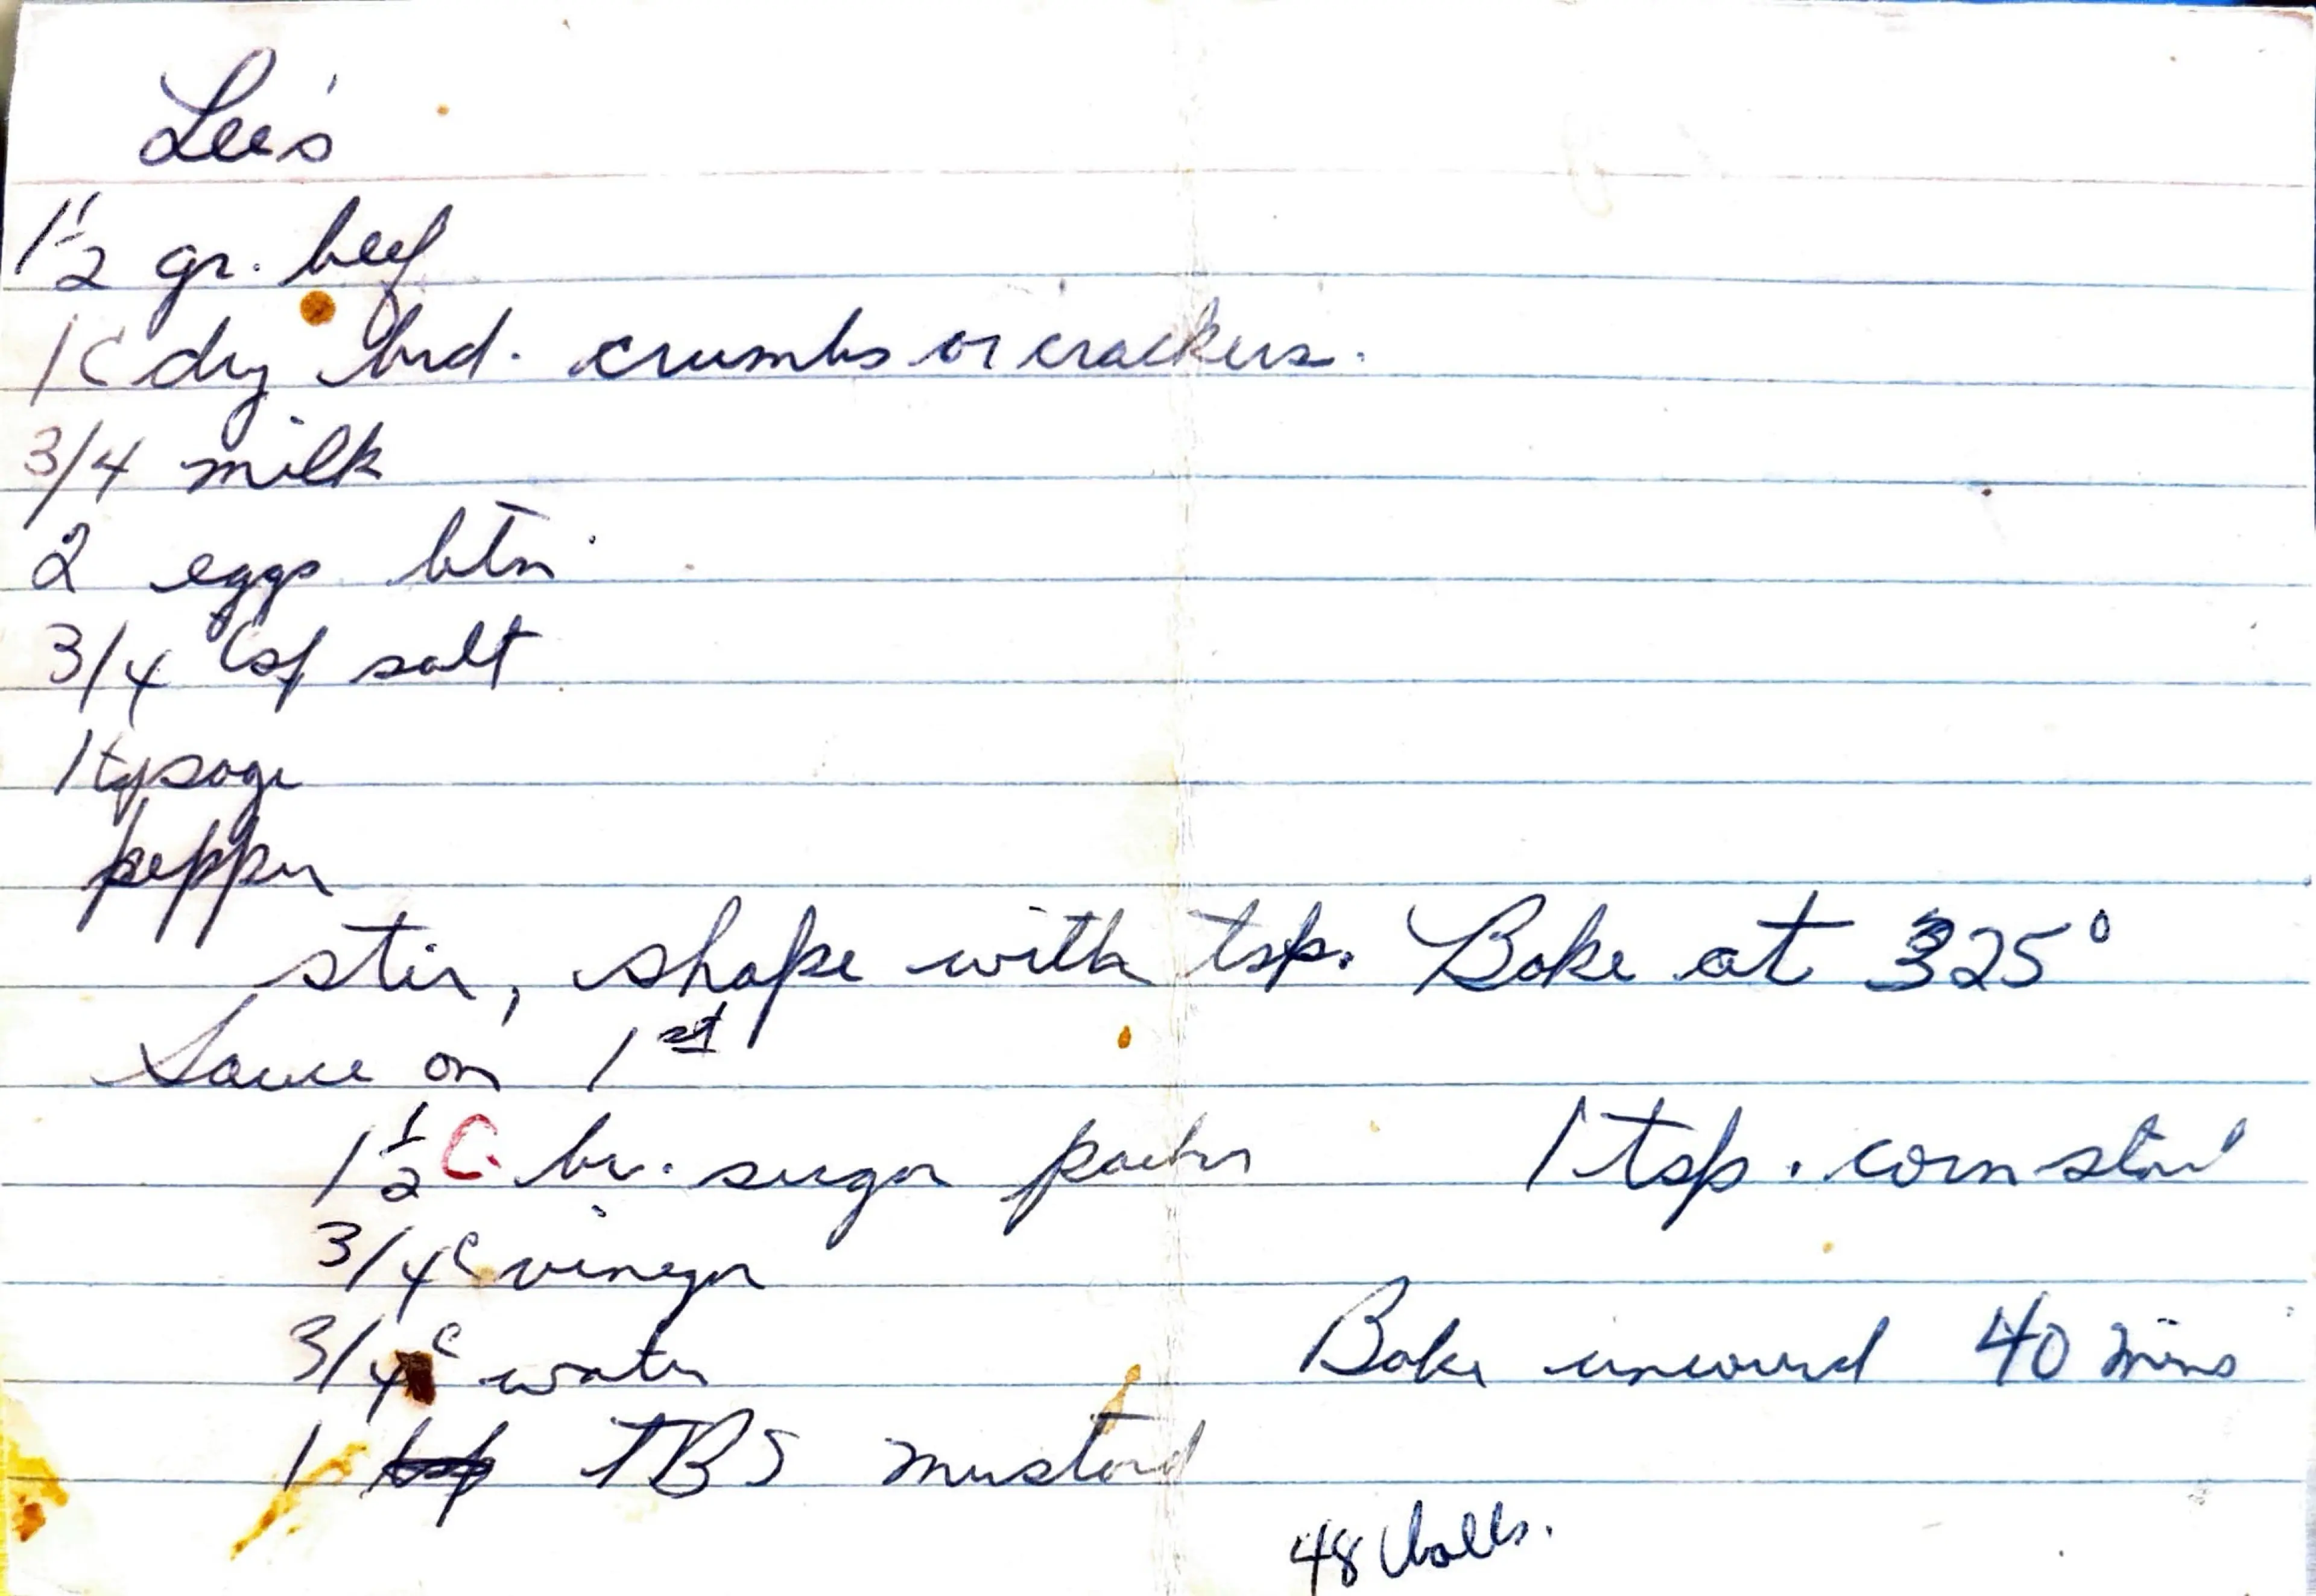 Lee's
1 1/2 gr. beef
1 C dry brd. crumbs or crackers.
3/4 milk
2 eggs btn.
3/4 tsp salt
1 tsp sage
pepper
stir, shape with tsp. Bake at 325°
Sauce on 1st
1 1/2 C. br. sugar 1 tsp. cornstar
3/4 c vinegar
3/4 c water Bake uncovered 40 mins
1 TBS mustard
48 balls.